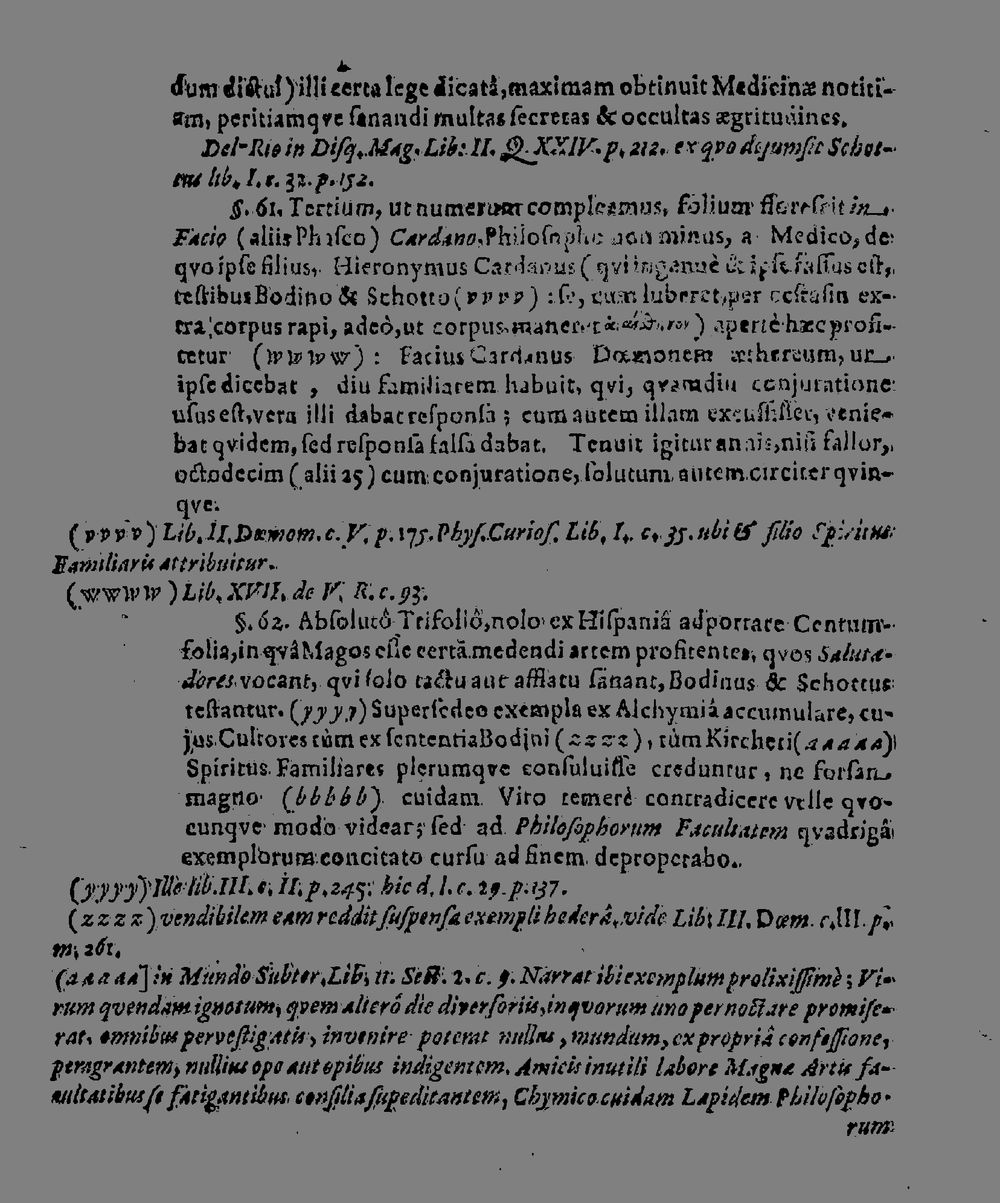 dum dictu!) illi certa lege dicatâ, maximam obtinuit Medicinæ notiti-
am, peritiamqve ſanandi multas ſecretas & occultas ægritudines.
Del-Rio in Diſq. Mag. Lib. II. Q. XXIV. p. 212. ex qvo deſumſit Schot-
tus lib. I. c. 32. p. 152.
§. 61. Tertium, ut numerum compleamus, folium floreſcit in
Facio (aliis Phaſco) Cardano, Philoſopho non minus, a Medico, de
qvo ipſe filius, Hieronymus Cardanus (qvi ingenuè & ipſe faſſus eſt,
teſtibus Bodino & Schotto (vvvv) : ſe, cum luberet, per ecſtaſin ex-
tra corpus rapi, adeò, ut corpus maneret) apertè hæc profi-
tetur (wwww) : Facius Cardanus Dœmonem æthereum, ut
ipſe dicebat, diu familiarem habuit, qvi, qvamdiu conjuratione
uſus eſt, vera illi dabat reſponſa ; cum autem illam excuſſiſſet, venie-
bat qvidem, ſed reſponſa falſa dabat. Tenuit igitur annis, niſi fallor,
octodecim (alii 25) cum conjuratione, ſolutum autem circiter qvin-
qve.
(vvvv) Lib. II. Dœmom. c. V. p. 175. Phyſ. Curioſ. Lib. I. c. 35. ubi & filio Spiritus
Familiaris attribuitur.
(wwww) Lib. XVII. de V. R. c. 93.
§. 62. Abſolutô Trifoliô, nolo ex Hiſpaniâ adportare Centum-
folia, in qvâ Magos eſſe certâ medendi artem profitentes, qvos Saluta-
dores vocant, qvi ſolo tactu aut afflatu ſanant, Bodinus & Schottus
teſtantur. (yyyy) Superſedeo exempla ex Alchymiâ accumulare, cu-
jus Cultores tùm ex ſententia Bodini (zzzz), tùm Kircheri (aaaaa)
Spiritus Familiares plerumqve conſuluiſſe creduntur, ne forſan
magno (bbbbb) cuidam Viro temerè contradicere velle qvo-
cunqve modo videar; ſed ad Philoſophorum Facultatem qvadrigâ
exemplorum concitato curſu ad finem deproperabo.
(yyyy) Ille lib. III. c. II. p. 245. hic d. l. c. 29. p. 137.
(zzzz) vendibilem eam reddit ſuſpenſa exempli hederâ, vide Lib. III. Dœm. c. III. p.
m. 261.
(aaaaa] in Mundo Subter. Lib. 11. Sect. 2. c. 9. Narrat ibi exemplum prolixiſſimè ; Vi-
rum qvendam ignotum, qvem alterô die diverſoriis, in qvorum uno pernoctare promiſe-
rat, omnibus perveſtigatis, invenire poterat nullus, mundum, ex propriâ confeſſione,
peragrantem, nullius ope aut opibus indigentem. Amicis inutili labore Magnæ Artis fa-
cultatibus ſe fatigantibus conſilia ſupeditantem, Chymico cuidam Lapidem Philoſopho-
rum